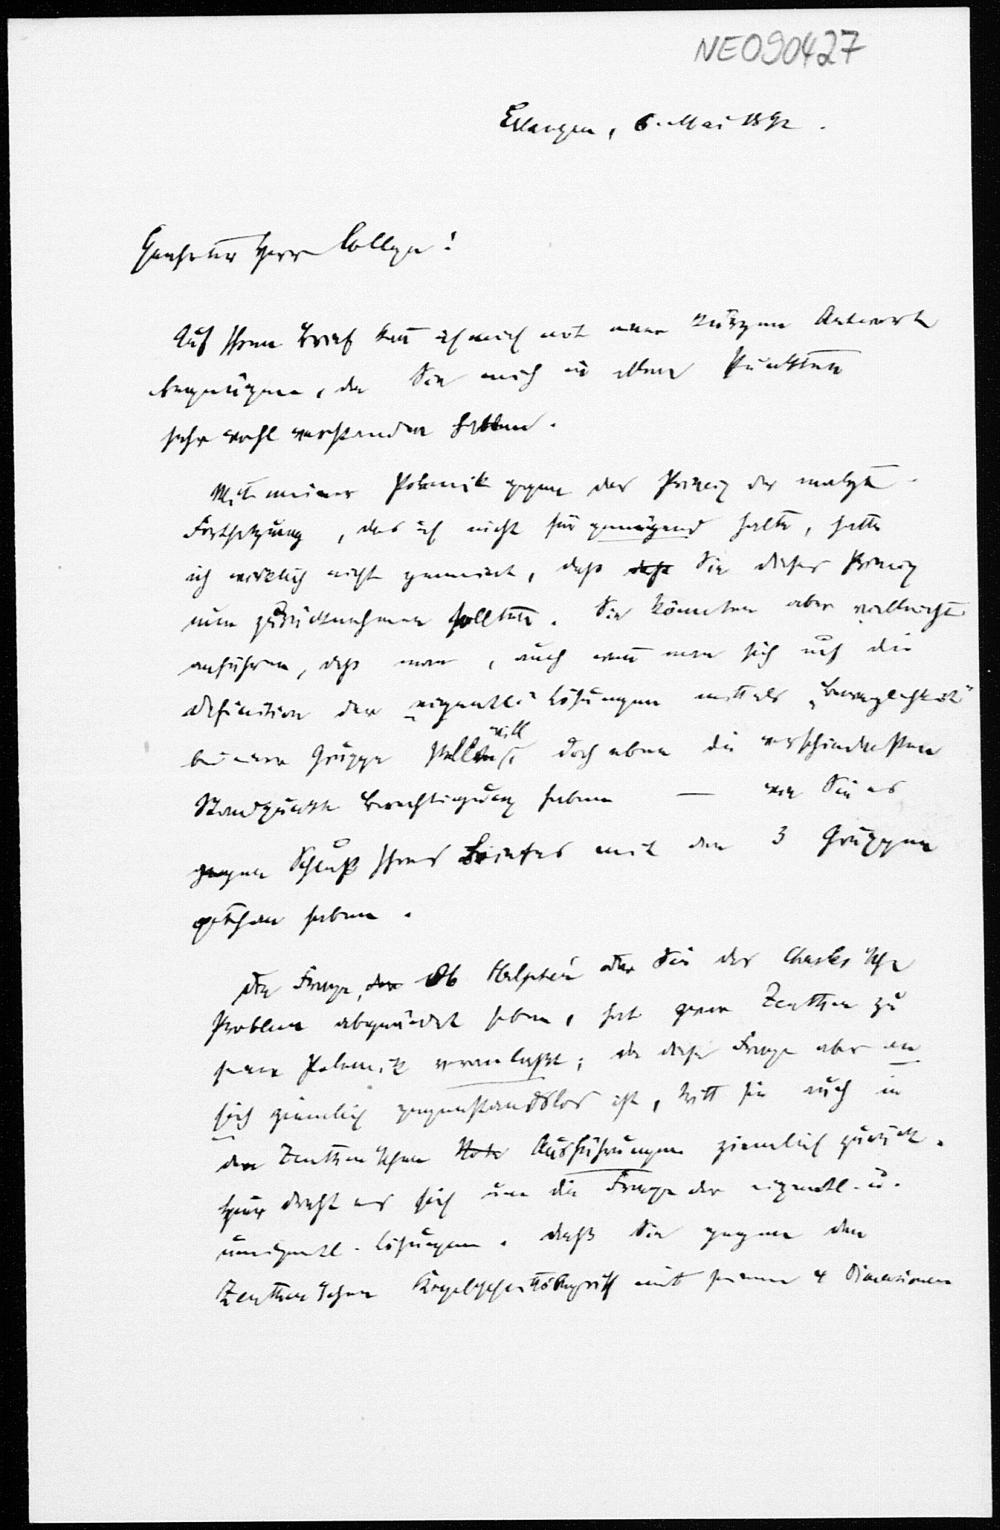 NE090427
Erlangen, 6. Mai 1892.
Geehrter Herr College!
Auf Ihren Brief kann ich mich mit einer kurzen Antwort
begnügen, da Sie mich in allen Punkten
sehr wohl verstanden haben.
Mit meiner Polemik gegen das Princip der analyt.
Fortsetzung, das ich nicht für genügend halte, hatte
ich wirklich nicht gemeint, daß Sie dieses Princip
nun zurücknehmen sollten. Sie könnten aber vielleicht
anführen, daß man, auch wenn man sich auf die
Definition der "eigentl." Lösungen mittels "Beweglichkeit"
bei einer Gruppe stellen will, doch eben die verschiedensten
Standpunkte Berechtigung haben — wie Sie es
gegen Schluß Ihres Briefes mit den 3 Gruppen
gethan haben.
Die Frage, ob Halphén oder Sie das Chasles'sche
Problem abgeändert haben, hat zwar Zeuthen zu
seiner Polemik veranlaßt; da diese Frage aber an
sich ziemlich gegenstandslos ist, tritt sie auch in
den Zeuthen'schen Ausführungen ziemlich zurück.
Hier dreht es sich um die Frage der eigentl. u.
uneigentl. Lösungen. Daß Sie gegen den
Zeuthen'schen Kegelschnittsbegriff mit seinen 4 Dimensionen